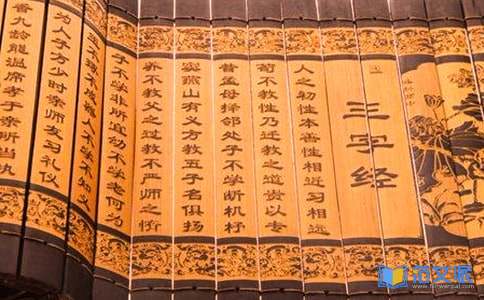 三字经
人之初性本善性相近习相远
苟不教性乃迁教之道贵以专
昔孟母择邻处子不学断机杼
窦燕山有义方教五子名俱扬
养不教父之过教不严师之惰
子不学非所宜幼不学老何为
玉不琢不成器人不学不知义
为人子方少时亲师友习礼仪
香九龄能温席孝于亲所当执